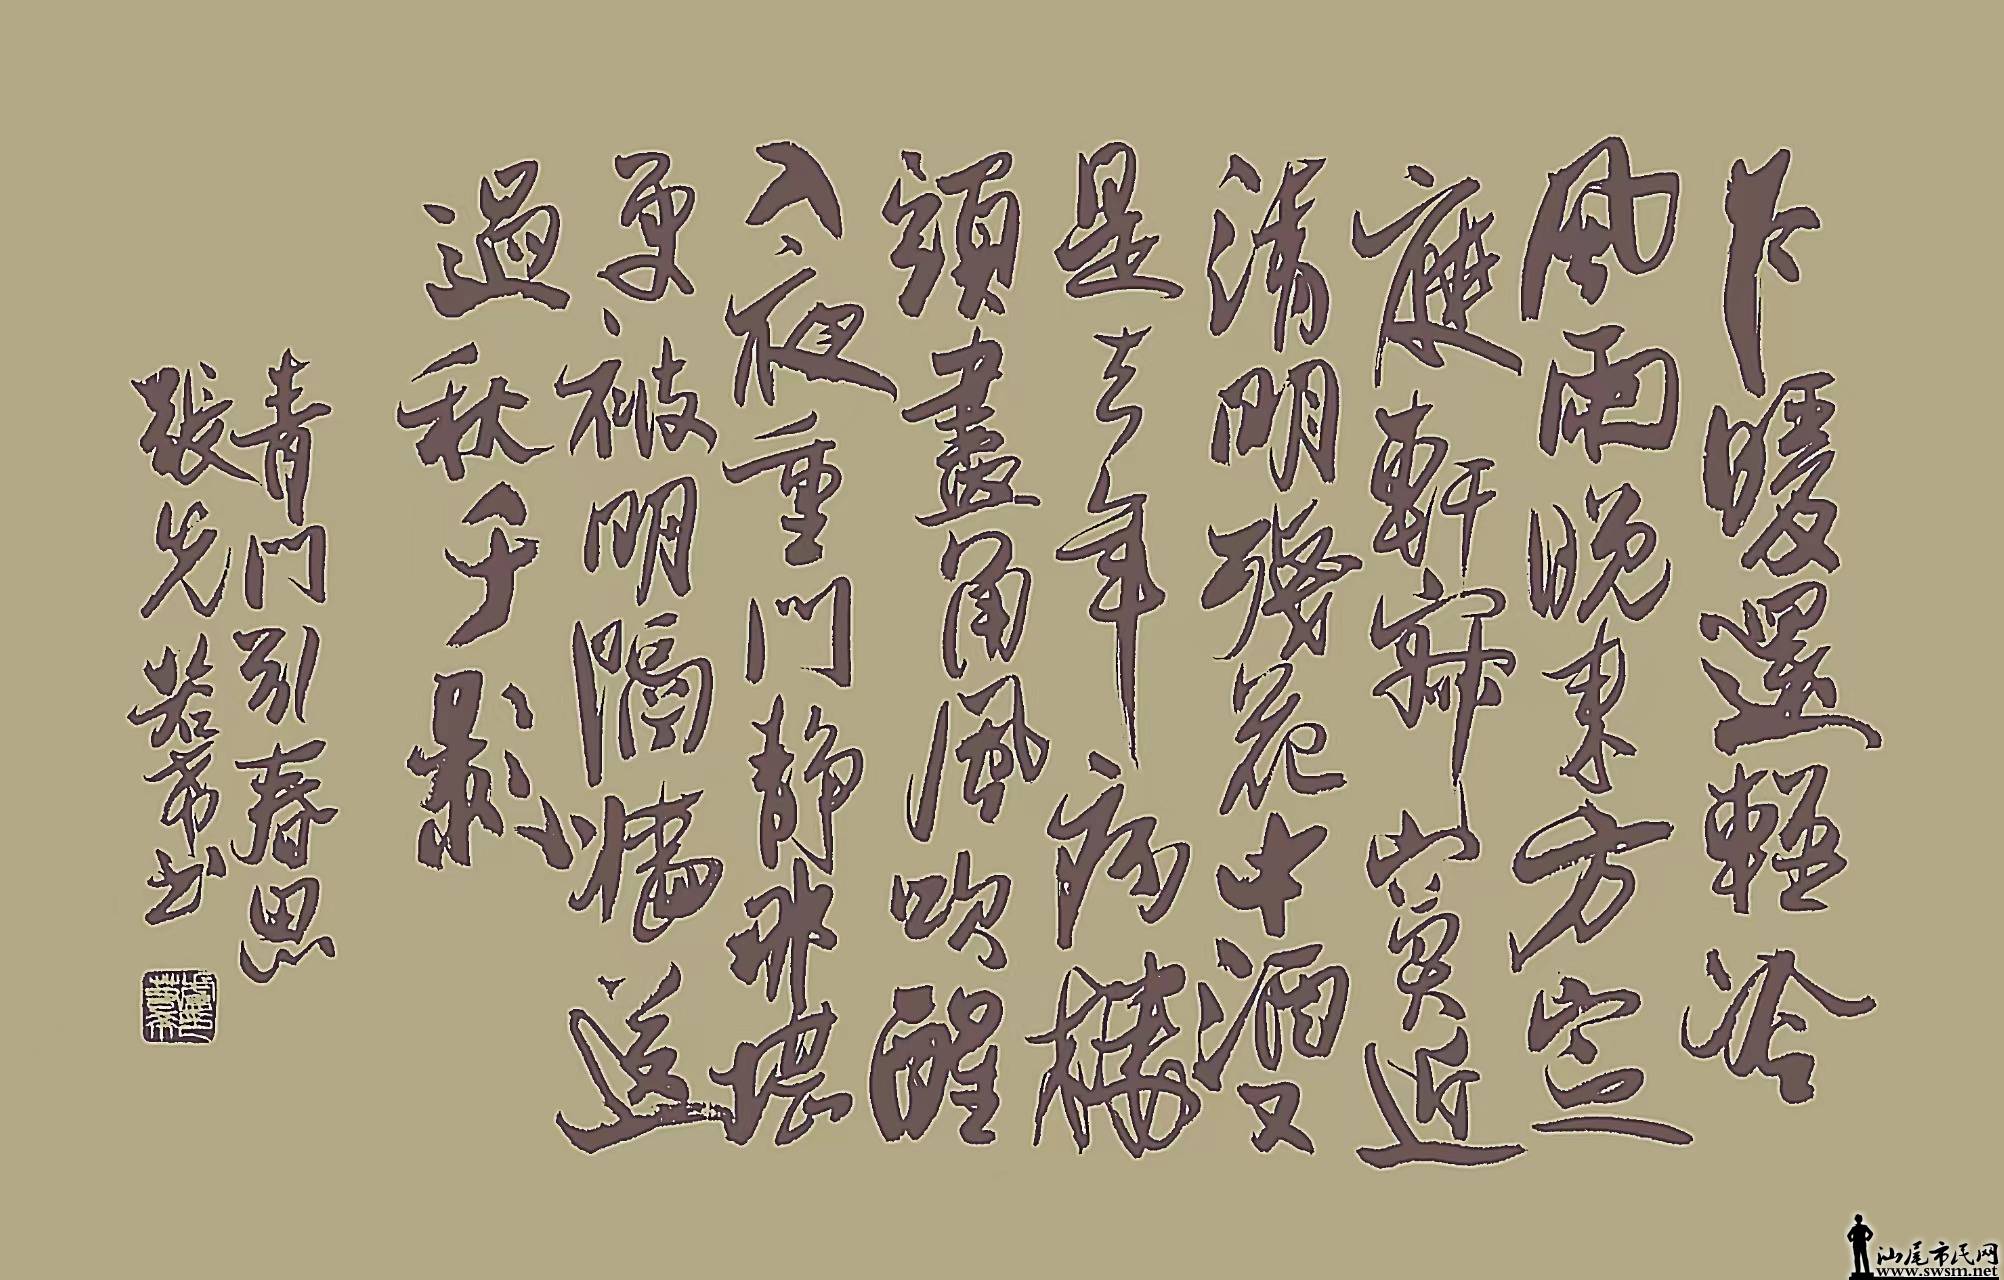 乍暖還輕冷
風雨晚來方定
庭軒寂寞近
清明殘花中酒又
是去年病
樓頭畫角風吹醒
入夜重門靜那堪
更被明月隔牆送
過秋千影
青門引春思
張先 若希书
汕尾市民网
www.swsm.net